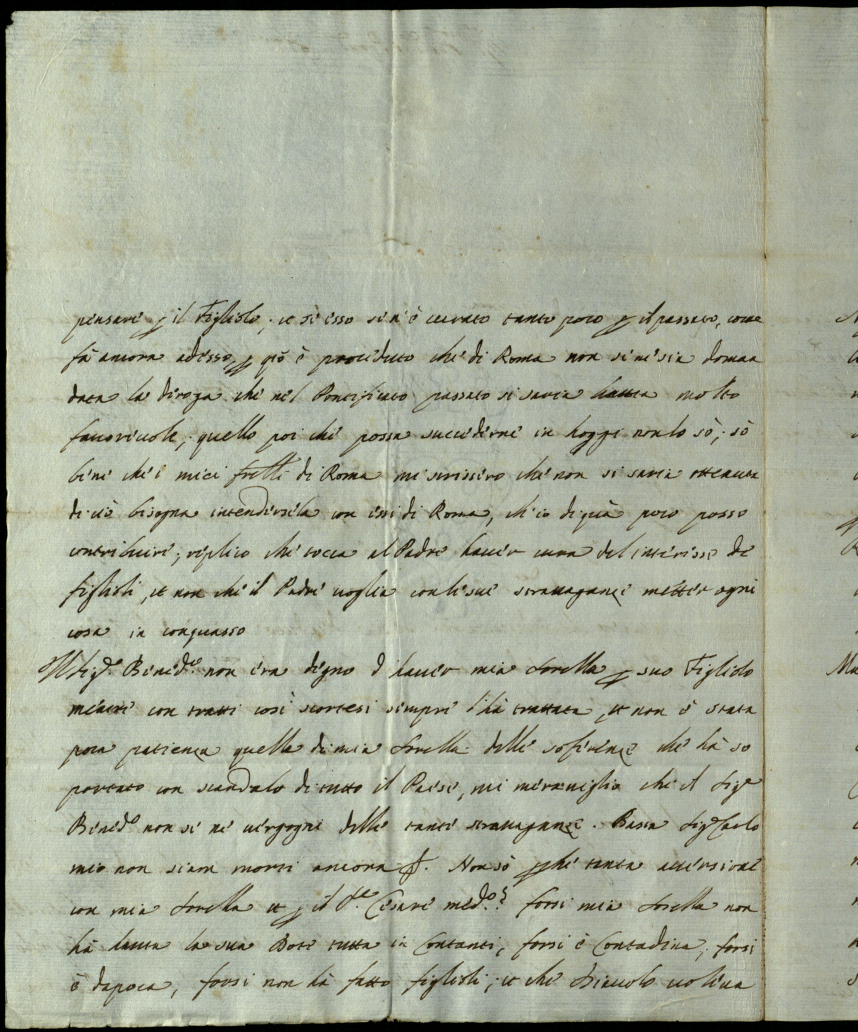 pensare p il Figliolo; et se esso se n'è curato tanto poco p il passato, come
fà ancora adesso, p ciò è proceduto che di Roma non se ne sia doman
data la diroga che nel Pontificato passato si saria hauta molto
fauoreuole; quello poi che possa succederne in hoggi non lo sò; sò
bene che i miei frelli di Roma mi scrissero che non si saria ottenuta
di ciò bisogna intendersela con essi di Roma, ch'io di quà poco posso
contribuire; replico che tocca al Padre hauer cura del interesse de
figlioli, et non che il Padre uoglia con le sue strauaganze metter ogni
cosa in conquasso
Il Sigre Bened.o non era degno d hauer mia Sorella p suo Figliolo
mentre con tratti così scortesi sempre l'hà trattata, et non è stata
poca patienza quella di mia Sorella delle soferenze che hà so
portato con scandalo di tutto il Paese, mi merauiglio che il Sigre
Bened.o non si ne uergogni delle tante strauaganze. Basta Sigr Carlo
mio non siam morti ancora &. Non sò pche tanta auersione
con mia Sorella et p il Cesare med.o? forsi mia Sorella non
hà hauta la sua Dote tutta in Contanti, forsi è Contadina, forsi
è dapoca, forsi non hà fatto figlioli; et che Diauolo uoleua